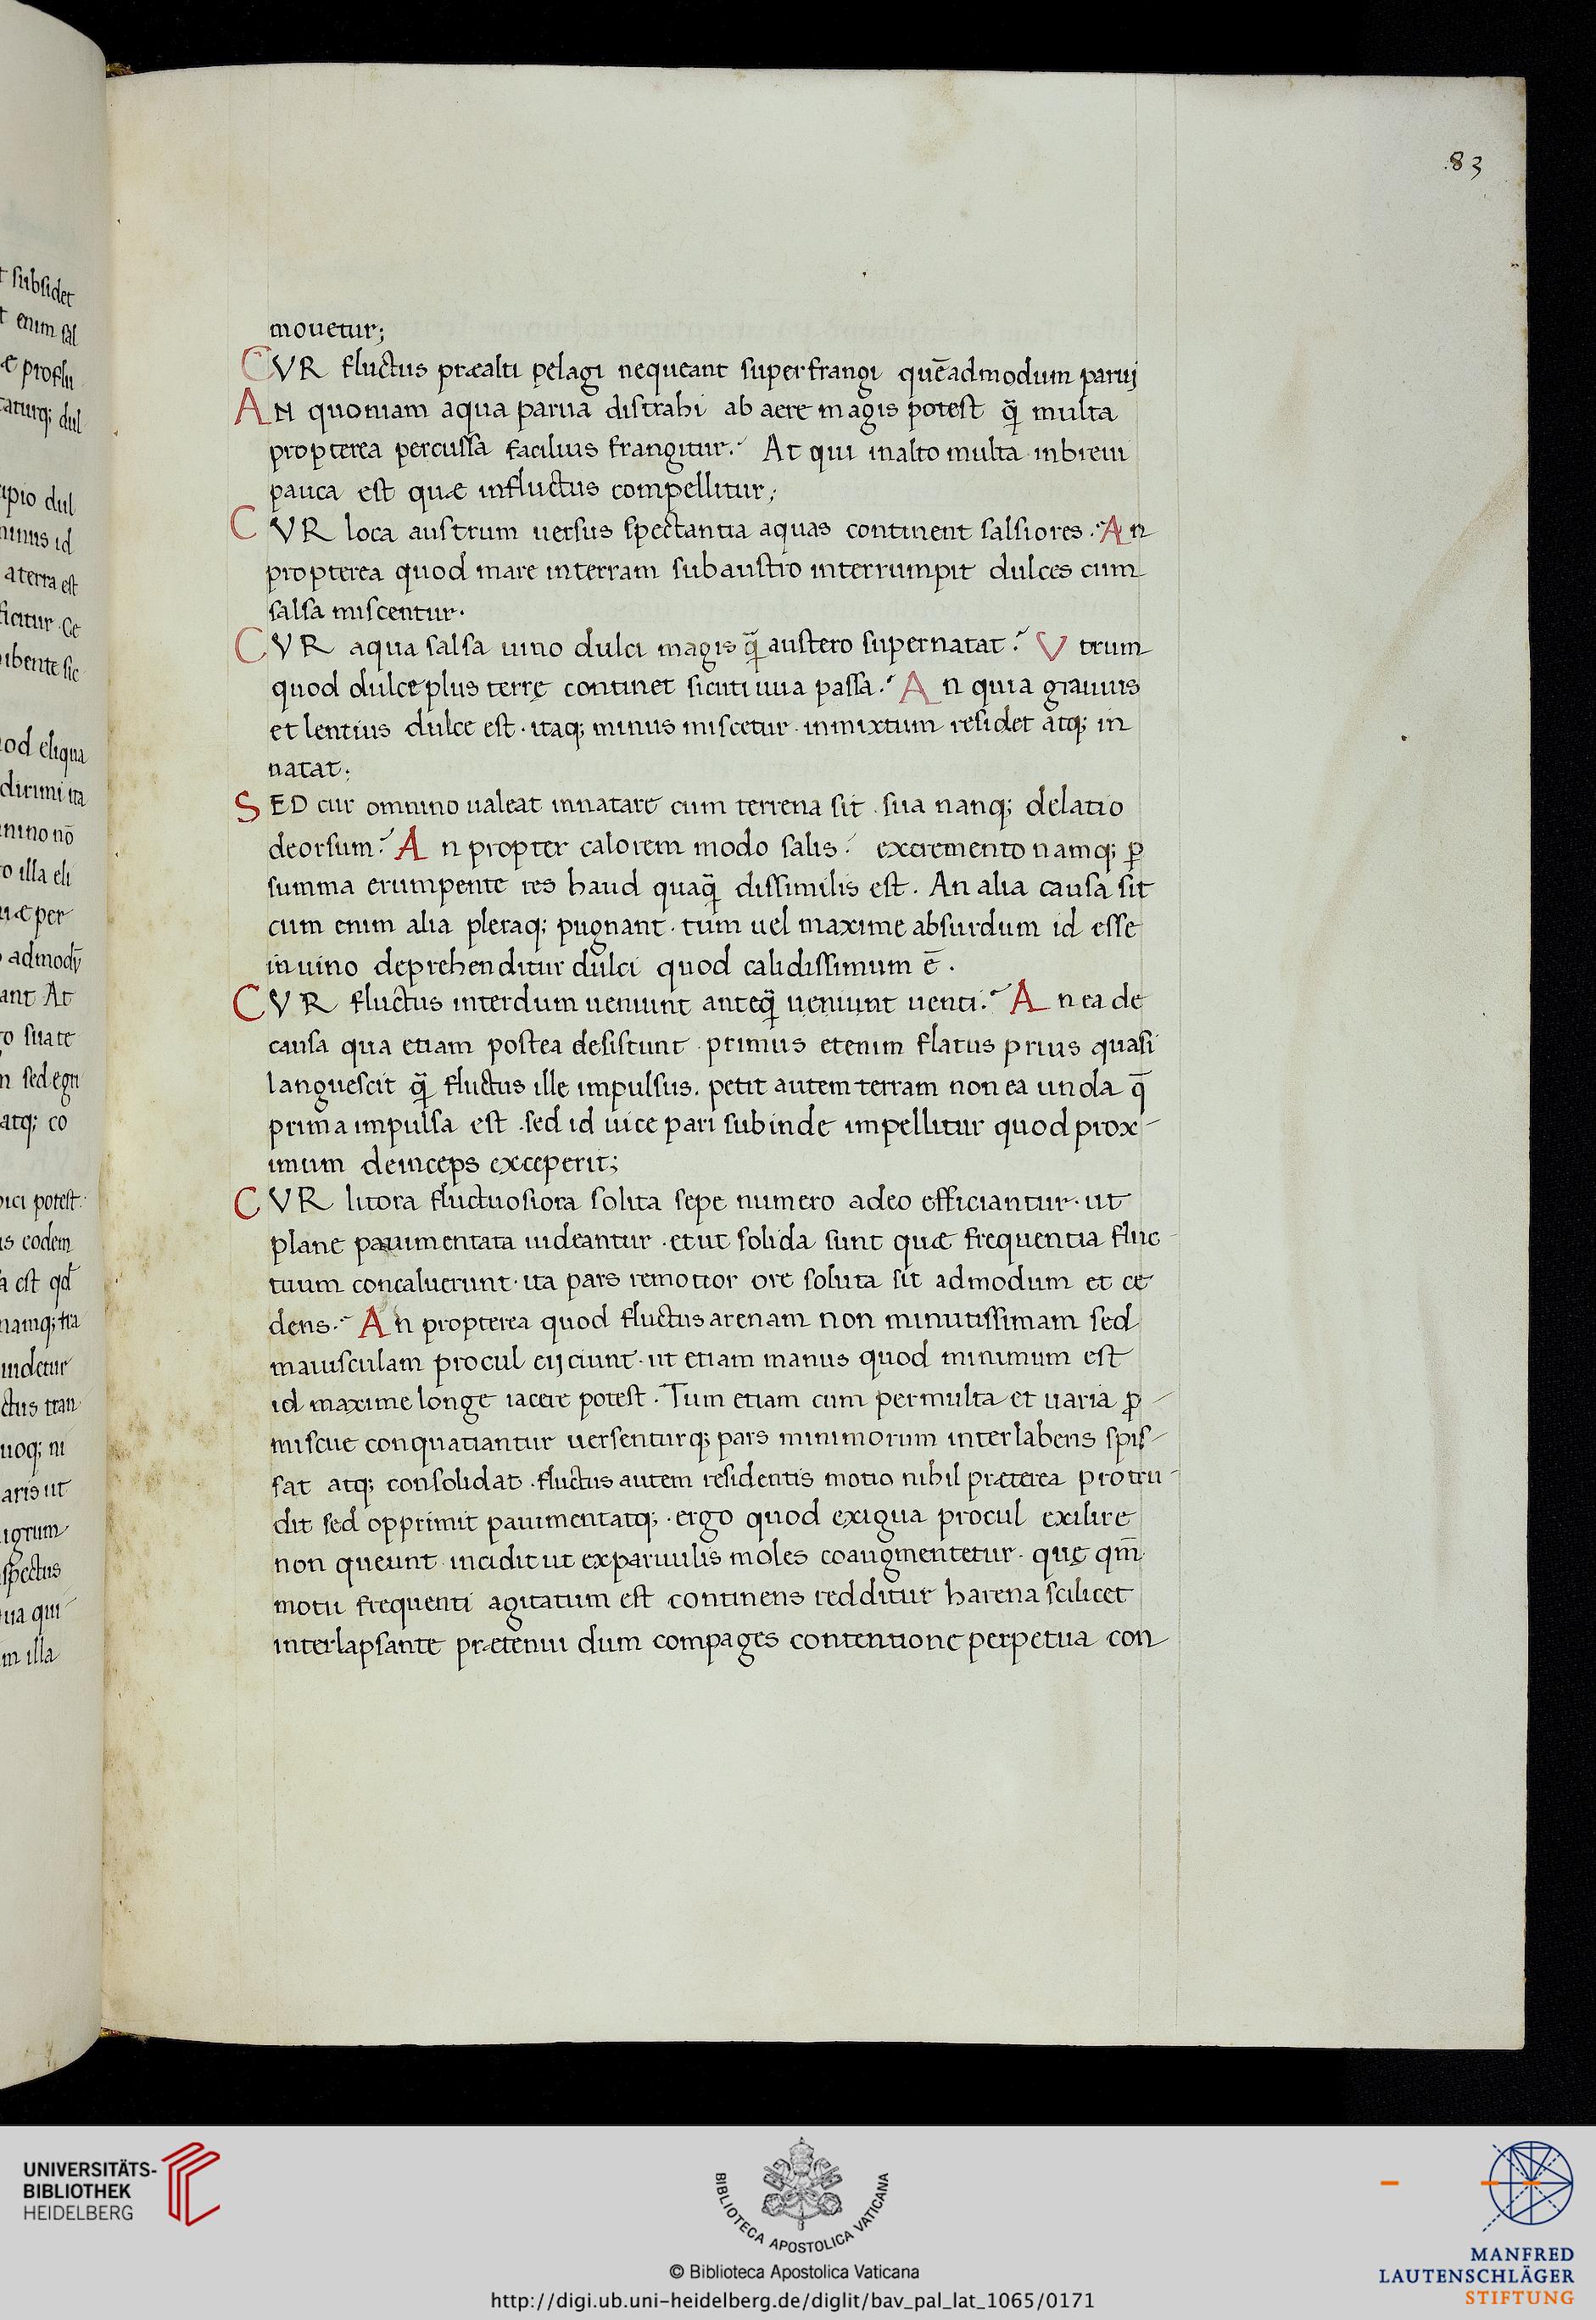 .83
t subsidet
t enim sal
æ proflu
taturq; dul
ipio dul
minus id
a terra est
ficitur. Ce
ibente sic
od eliqua
dirimi ita
nino nō
o illa eli
uæ per
admodū
ant At
o sua te
n sed egri
atq; co
ici potest.
is eodem
a est qđ
namq; tra
uidetur
ctus tran
uoq; ni
aris ut
igrum
spectus
ua qui
m illa
mouetur;
CVR fluctus præalti pelagi nequeant superfrangi quēadmodum paruj
AN quoniam aqua parua distrahi ab aere magis potest q̄ multa
propterea percussa facilius frangitur? At qui inalto multa inbreui
pauca est quæ influctus compellitur;
CVR loca austrum uersus spectantia aquas continent salsiores? An
propterea quod mare interram subaustro interrumpit dulces cum
salsa miscentur.
CVR aqua salsa uino dulci magis q̄ austero supernatat? Vtrum
quod dulce plus terrę continet sicuti uua passa? An quia grauius
et lentius dulce est. itaq; minus miscetur. inmixtum residet atq; in
natat;
SED cur omnino ualeat innatare cum terrena sit. sua nanq; delatio
deorsum? An propter calorem modo salis? excremento namq; ꝑ
summa erumpente res haud quaq̄ dissimilis est. An alia causa sit
cum enim alia pleraq; pugnant. tum uel maxime absurdum id esse
inuino deprehenditur dulci quod calidissimum ē.
CVR fluctus interdum ueniunt anteq̄ ueniunt uenti? An ea de
causa qua etiam postea desistunt. primus etenim flatus prius quasi
languescit q̄ fluctus ille impulsus. petit autem terram non ea unda q̄
prima impulsa est. sed id uice pari subinde impellitur quod prox-
imum deinceps exceperit;
CVR litora fluctuosiora solita sepe numero adeo efficiantur. ut
plane pauimentata uideantur. et ut solida sunt quæ frequentia fluc-
tuum concaluerunt. ita pars remotior ore soluta sit admodum et ce
dens? An propterea quod fluctus arenam non minutissimam sed
maiusculam procul eijciunt. ut etiam manus quod minimum est
id maxime longe iacere potest. Tum etiam cum permulta et uaria ꝓ-
miscue conquatiantur uersenturq; pars minimorum interlabens spis-
sat atq; consolidat. fluctus autem residentis motio nihil præterea protru-
dit sed opprimit pauimentatq;. ergo quod exigua procul exilire
non queunt incidit ut exparuulis moles coaugmentetur. quę qm̄
motu frequenti agitatum est continens redditur harena scilicet
interlapsante prætenui dum compages contentione perpetua con-
UNIVERSITÄTS-
BIBLIOTHEK
HEIDELBERG
BIBLIOTECA APOSTOLICA VATICANA
© Biblioteca Apostolica Vaticana
http://digi.ub.uni-heidelberg.de/diglit/bav_pal_lat_1065/0171
MANFRED
LAUTENSCHLÄGER
STIFTUNG